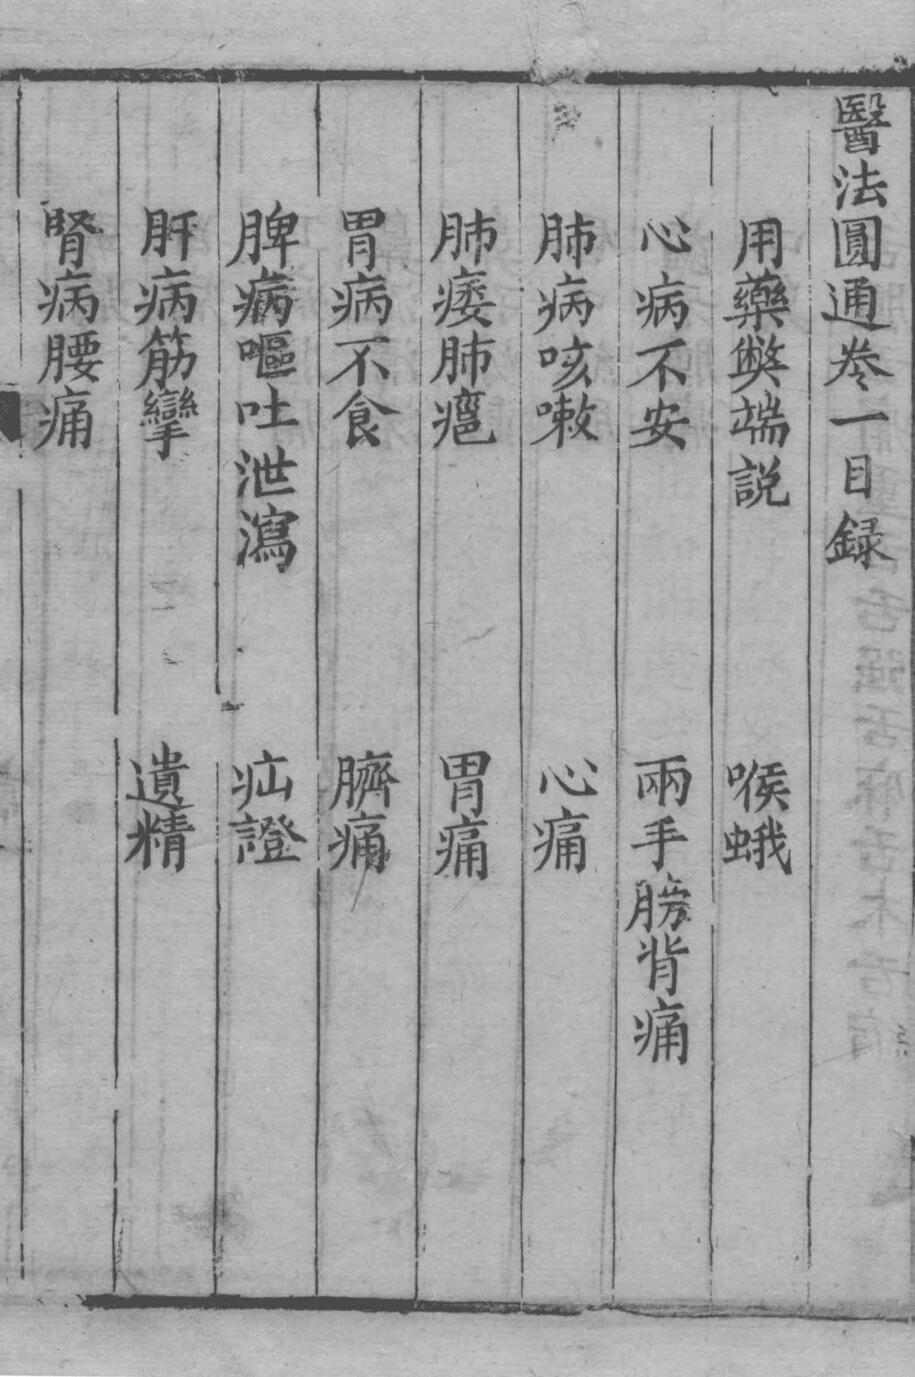 醫法圓通卷一目録
用藥獘端説　喉蛾
心病不安　兩手膀背痛
肺病咳嗽　心痛
肺痿肺癰　胃痛
胃病不食　臍痛
脾病嘔吐泄瀉　疝證
肝病筋攣　遺精
腎病腰痛